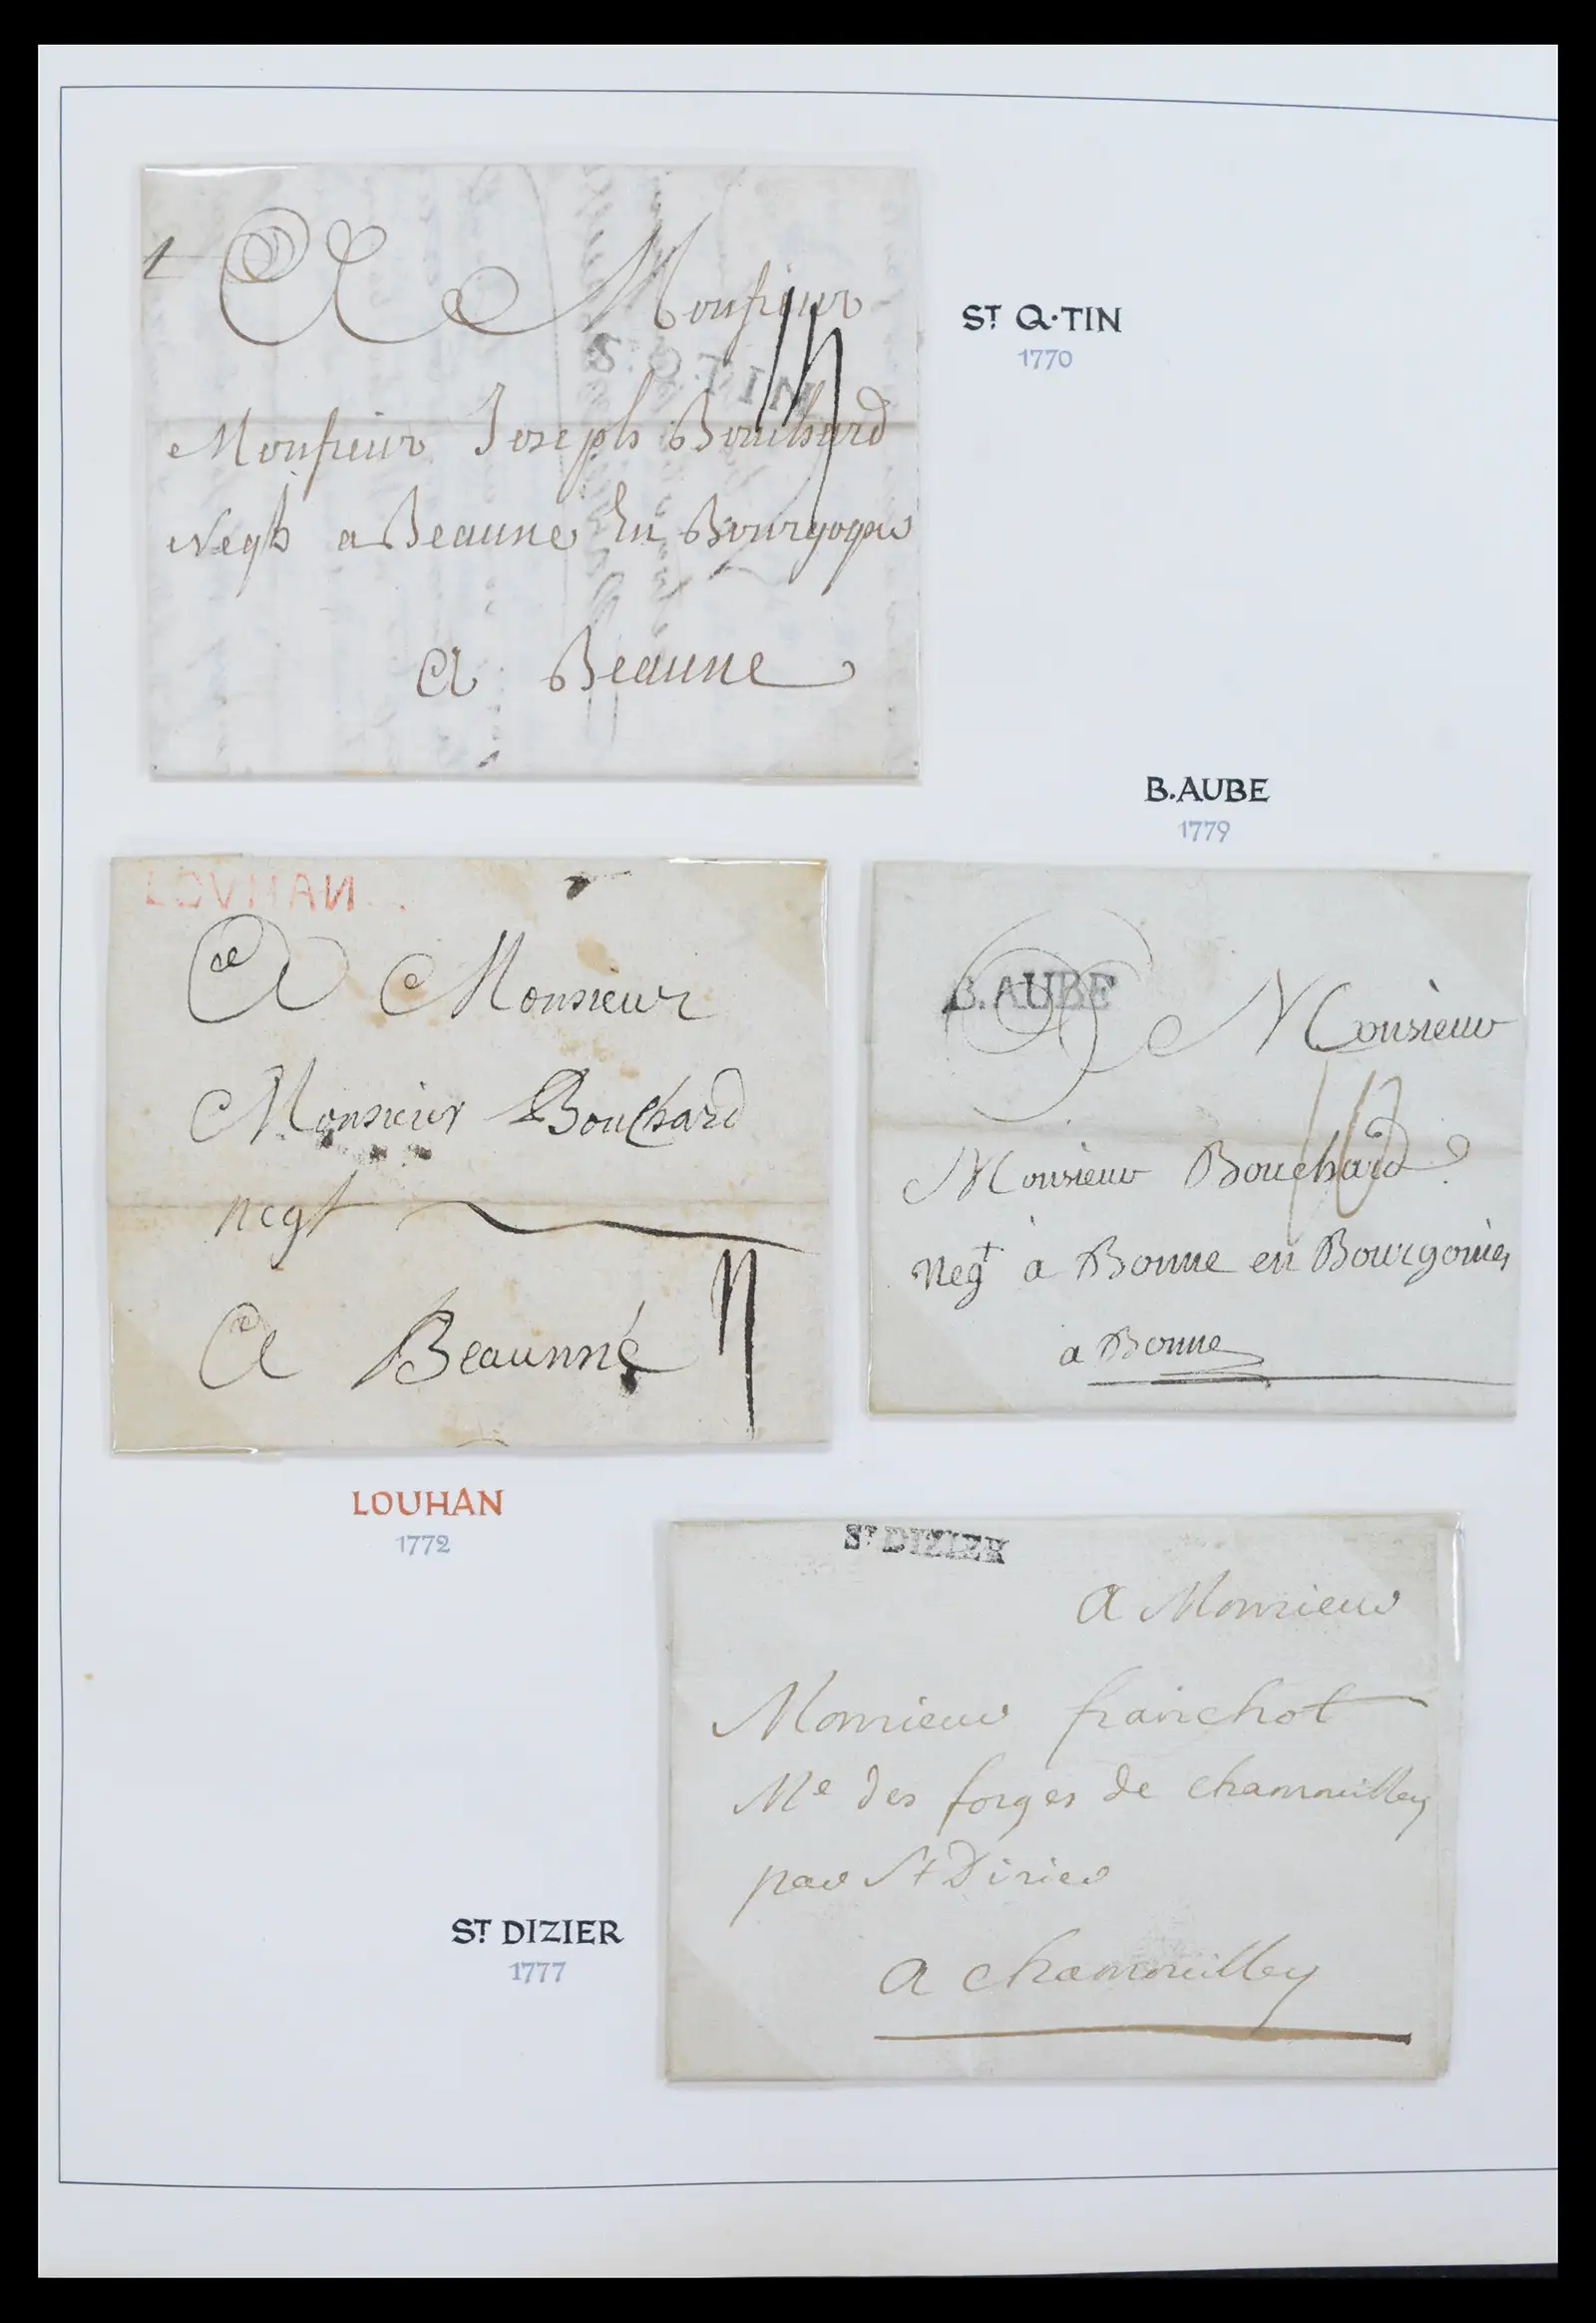 A Monsieur
S.T Q.TIN
Monsieur Joseph Bouchard
Negt a Beaune En Bourgogne
A Beaune
ST Q·TIN
1770
B.AUBE
1779
LOUHAN
A Monsieur
Monsieur Bouchard
negt
A Beaunné
LOUHAN
1772
B.AUBE
A Monsieur
Monsieur Bouchard
Negt a Bonne en Bourgonies
a Bonne
ST DIZIER
a Monsieur
Monsieur franchot
Me des forges de chamouilley
par St Dizier
a chamouilley
ST DIZIER
1777